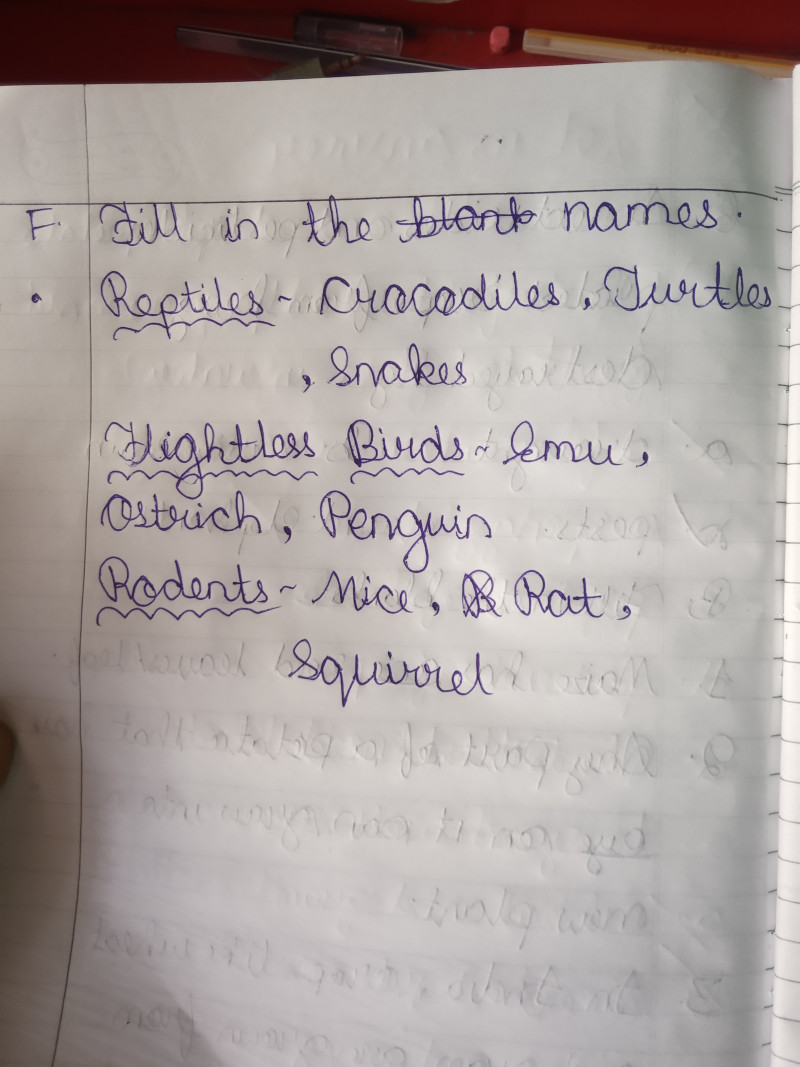 F. Fill in the blank names.
• Reptiles ~ Crocodiles, Turtles
, Snakes
Flightless Birds ~ Emu,
Ostrich, Penguin
Rodents ~ Mice, R Rat,
Squirrel